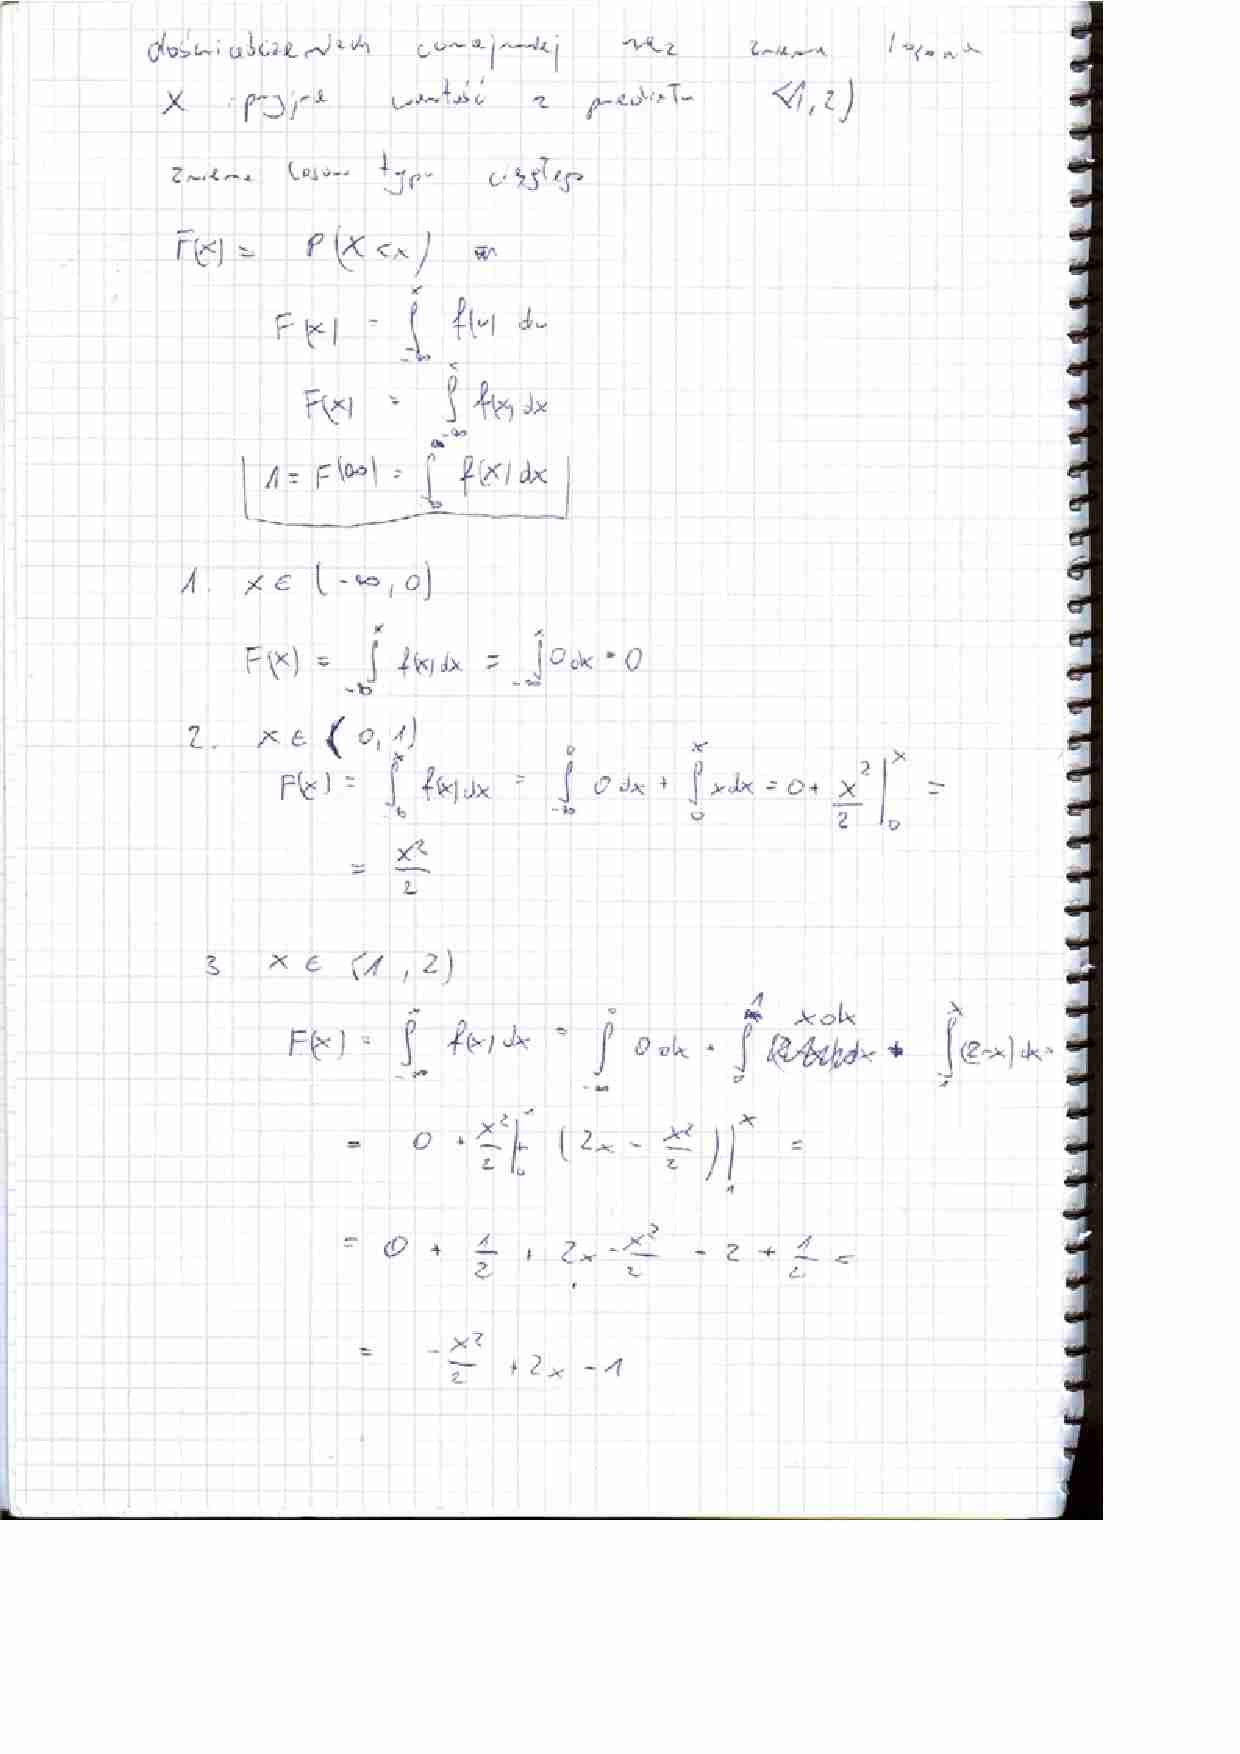 doświadczeniach conajmniej raz zmienna losowa
X przyjmie wartość z przedziału <1,2)
zmienna losowa typu ciągłego
F(x) = P(X<x)
F(x) = ∫_{-∞}^{x} f(u) du
F(x) = ∫_{-∞}^{x} f(x) dx
1 = F(∞) = ∫_{-∞}^{∞} f(x) dx
1. x ∈ (-∞, 0)
F(x) = ∫_{-∞}^{x} f(x) dx = ∫_{-∞}^{x} 0 dx = 0
2. x ∈ ( 0, 1)
F(x) = ∫_{-∞}^{x} f(x) dx = ∫_{-∞}^{0} 0 dx + ∫_{0}^{x} x dx = 0 + x²/2 |_{0}^{x} =
= x²/2
3 x ∈ (1, 2)
F(x) = ∫_{-∞}^{x} f(x) dx = ∫_{-∞}^{0} 0 dx + ∫_{0}^{1} x dx + ∫_{1}^{x} (2-x) dx =
= 0 + x²/2 |_{0}^{1} + (2x - x²/2) |_{1}^{x} =
= 0 + 1/2 + 2x - x²/2 - 2 + 1/2 =
= -x²/2 + 2x - 1